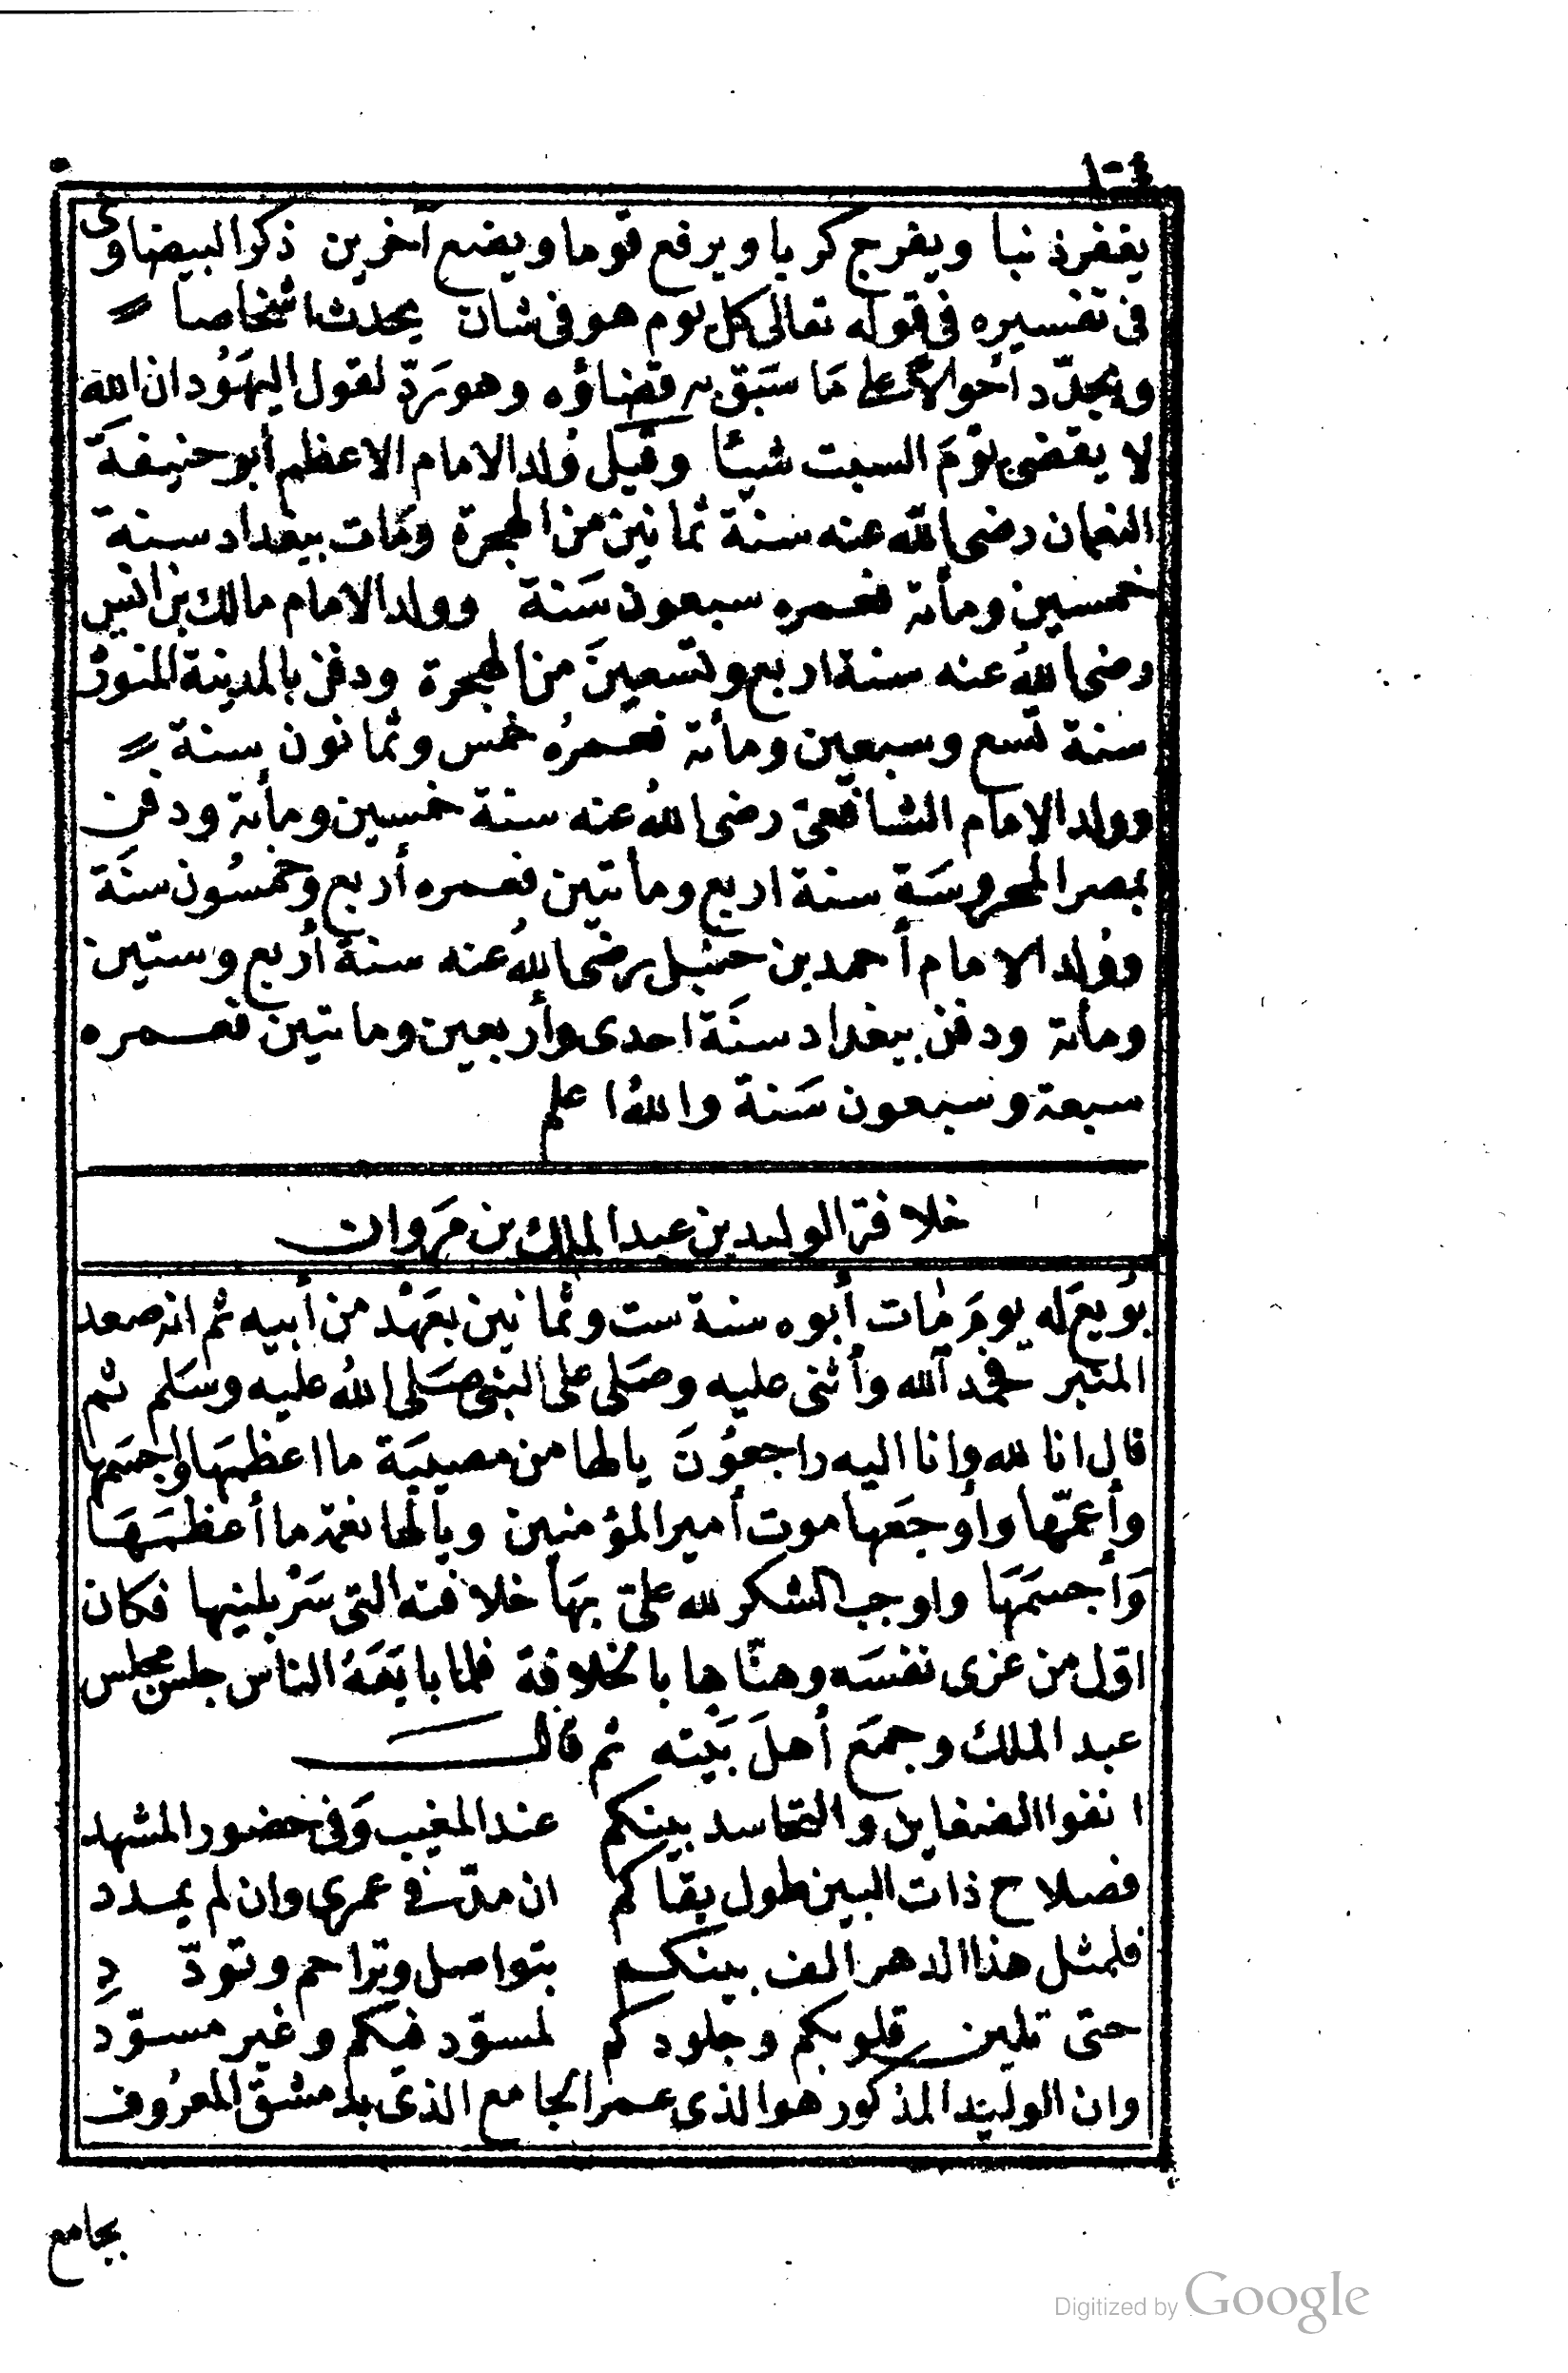 يغفر ذنبا ويفرج كربا ويرفع قوما ويضع آخرين ذكر البيضاوى
فى تفسيره فى قوله تعالى كل يوم هو فى شان يحدث اشخاصا
ويجدّد أحوالا على مَا سَبَق به قضاؤه وهو رَدّ لقول اليَهُود ان الله
لا يقضى يَوْمَ السبت شيئا وقيل وُلد الامام الاعظم أبو حنيفة
النعمان رضى الله عنه سنة ثمانين من الهجرة ومَات ببغداد سنة
خمسين ومأة فعمره سبعون سَنة وولد الامام مالك بن انس
رضى اللهُ عنه سنة اربع وتسعينَ من الهجرة ودفن بالمدينة المنورة
سنة تسع وسبعين ومأة فعمرُه خمس وثمانون سنة
وولد الامام الشافعىّ رضى اللهُ عنه سنة خمسين ومأة ودفن
بمصر المحروسَة سنة اربع ومأتين فعمره أربع وخمسُون سنَة
ووُلد الامام أحمد بن حنبل رضى اللهُ عنه سنة أربع وستين
ومأة ودفن ببغداد سنَة احدى وأربعين وماتين فعمره
سبعة وسبعون سَنة واللهُ اعلم
خلافة الوليد بن عبد الملك بن مَروان
بُويعَ له يومَ مَات أبوه سنة ست وثمانين بعَهْد من أبيه ثم انه صعد
المنبر فحمد الله وأثنى عليه وصَلى على النبى صَلى اللهُ عليه وسَلم ثم
قال انا لله وانا اليه راجعوُنَ يالها من مصيبَة ما اعظمهَا وأجسَمها
وأعمّها وأوجَعها موت أمير المؤمنين ويالها نعمة ما أعظمَهَا
وَأجسَمَهَا واوجب الشكر لله علىّ بهَا خلافته التى سَرْبلنيها فكان
اوّل من عزى نفسَه وهنّاها بالخلافة فلما بايَعَهُ الناس جلس مجلس
عبد الملك وجمَع أهلَ بَيْته ثم قال
انفوا الضغاين والتحاسد بينكم عند المغيب وَفى حضور المشهد
فصلاح ذات البين طول بقاكم ان مدّ فى عمرى وان لم يمدد
فلمثل هذا الدهر الف بينكم بتواصل وتراحم وتودّد
حتى تلين قلوبكم وجلودكم لمسوّد فيكم وغير مسوّد
وان الوليد المذكور هو الذى عمر الجامع الذى بدمشق المعرُوف
بجامع
Digitized by Google